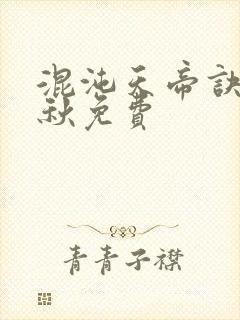 混沌天帝訣
秋免費
青青子襟